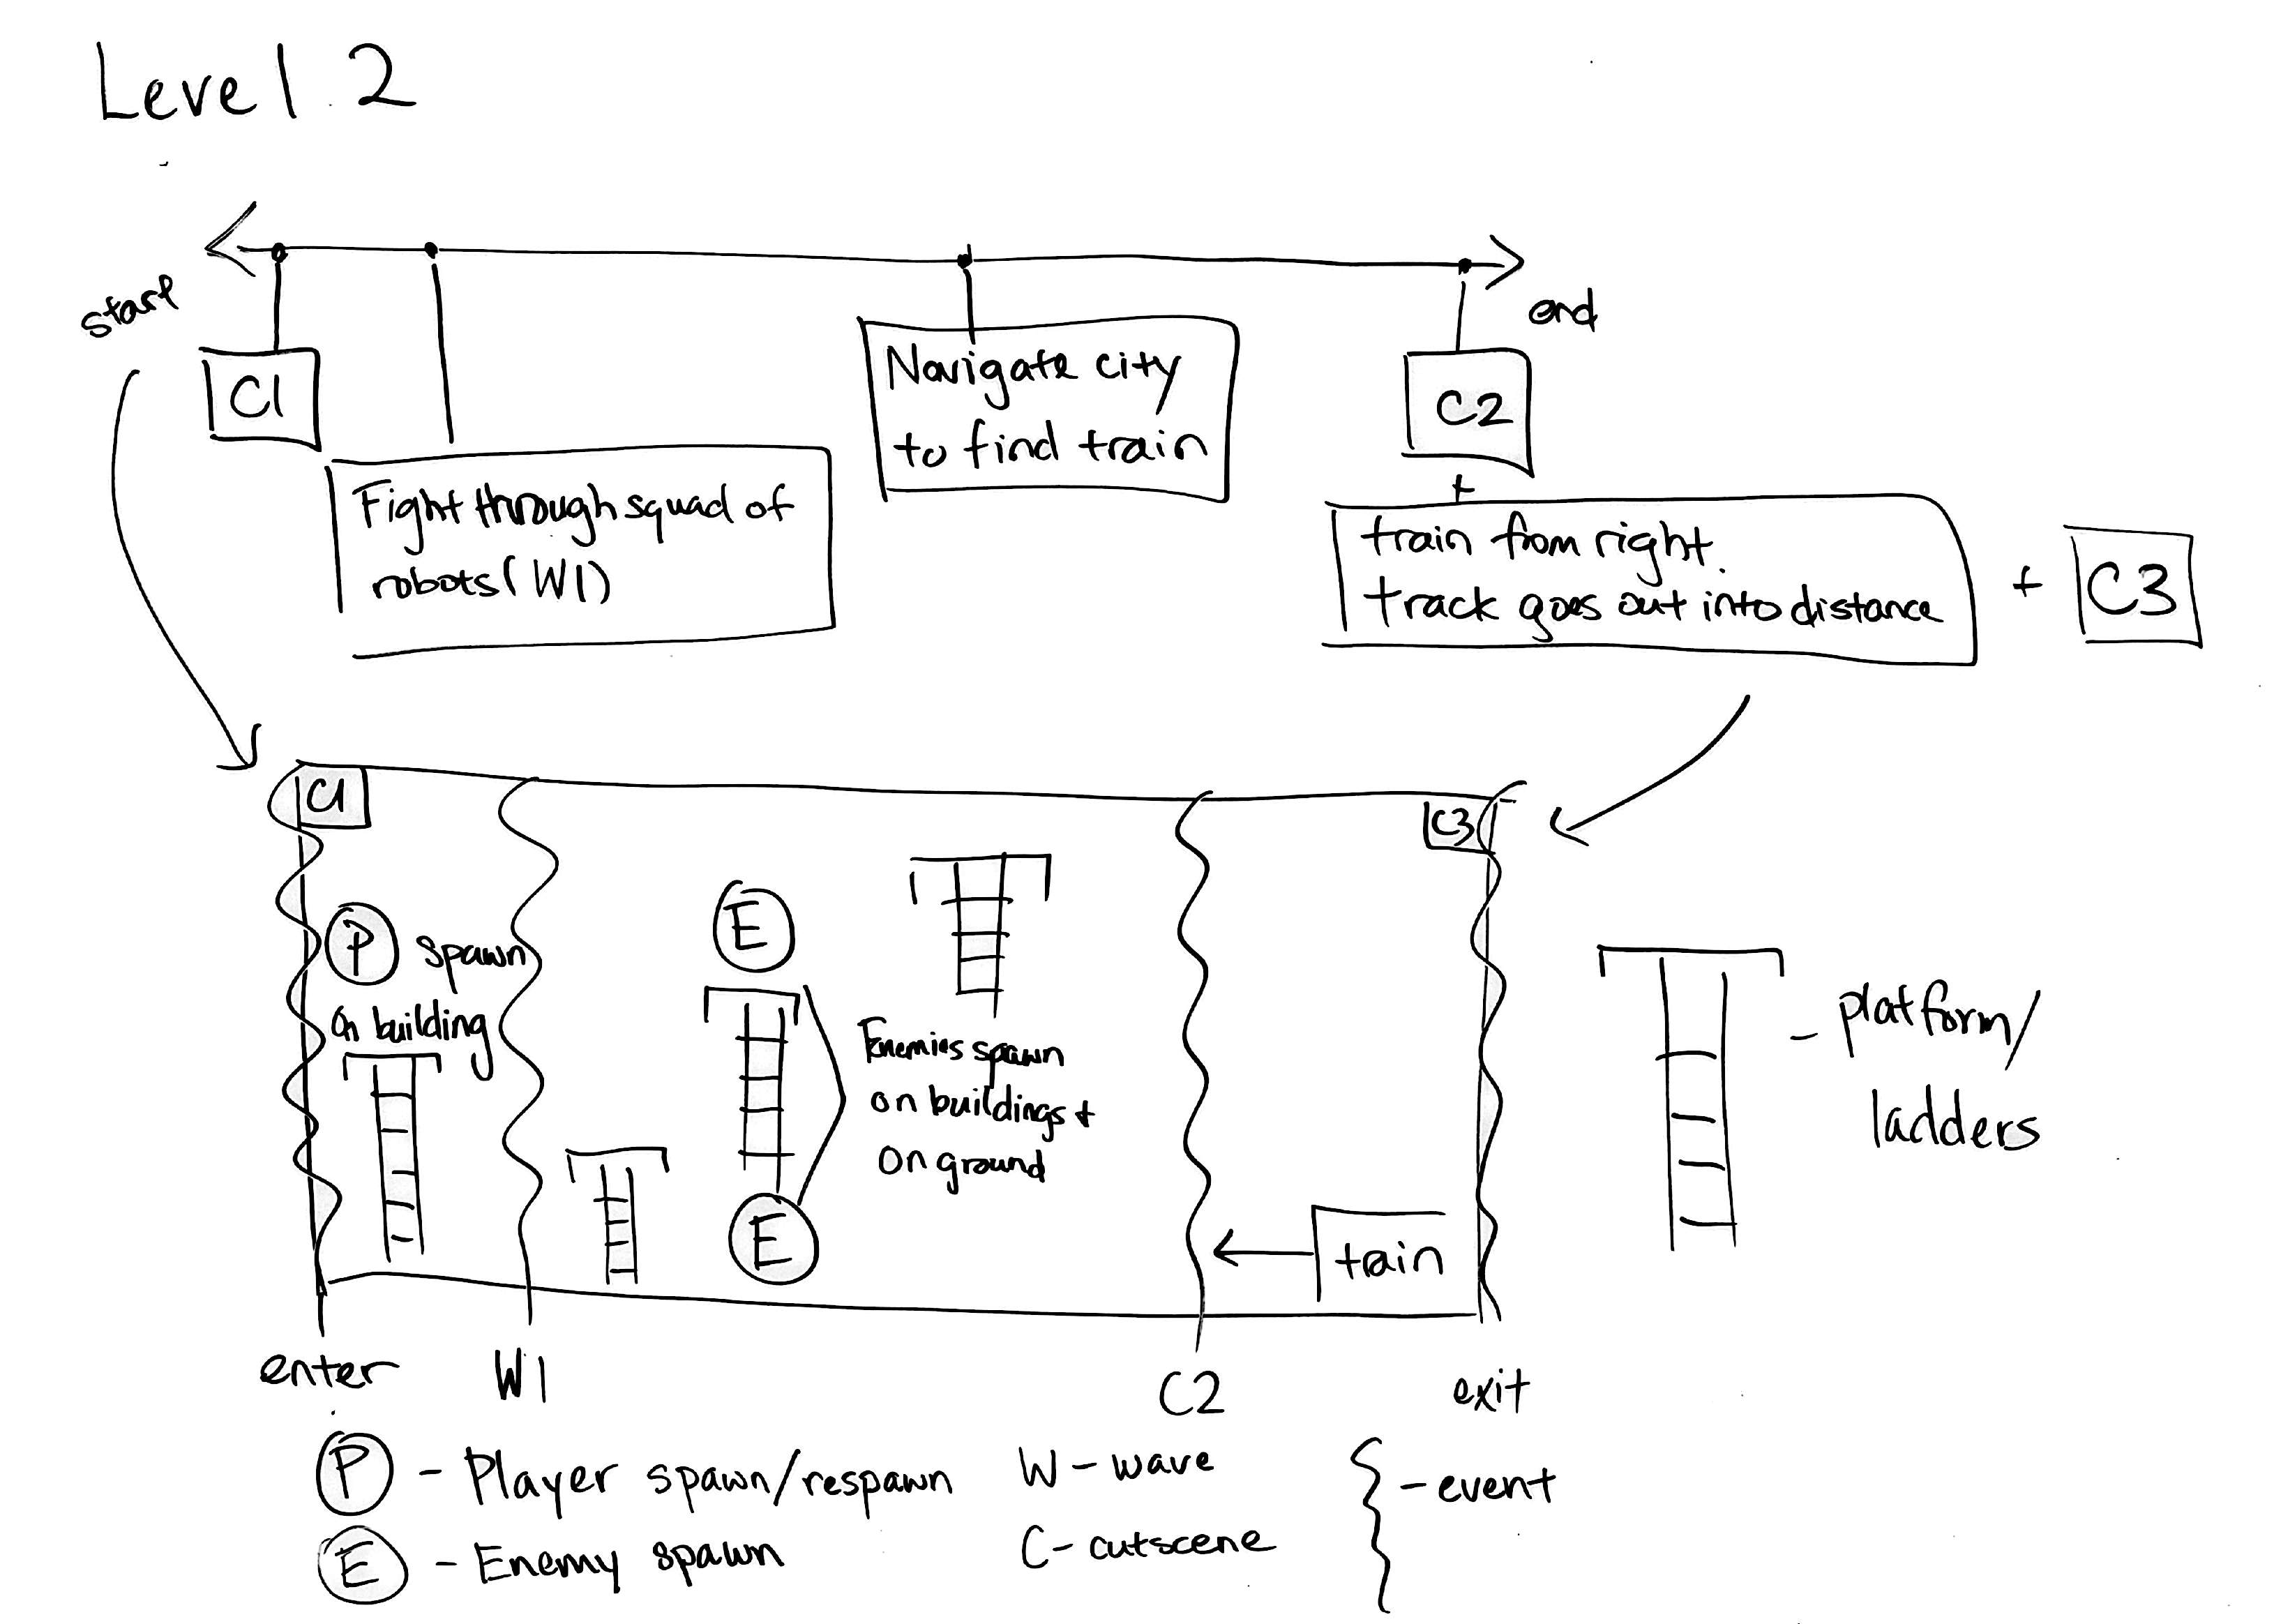 Level 2
start
end
C1
Fight through squad of
robots (W1)
Navigate city
to find train
C2
+
train from right
track goes out into distance
+
C3
C1
P spawn
on building
E
Enemies spawn
on buildings +
on ground
E
C3
train
- platform/
ladders
enter
W1
C2
exit
P - Player spawn/respawn
E - Enemy spawn
W - wave
C - cutscene
- event